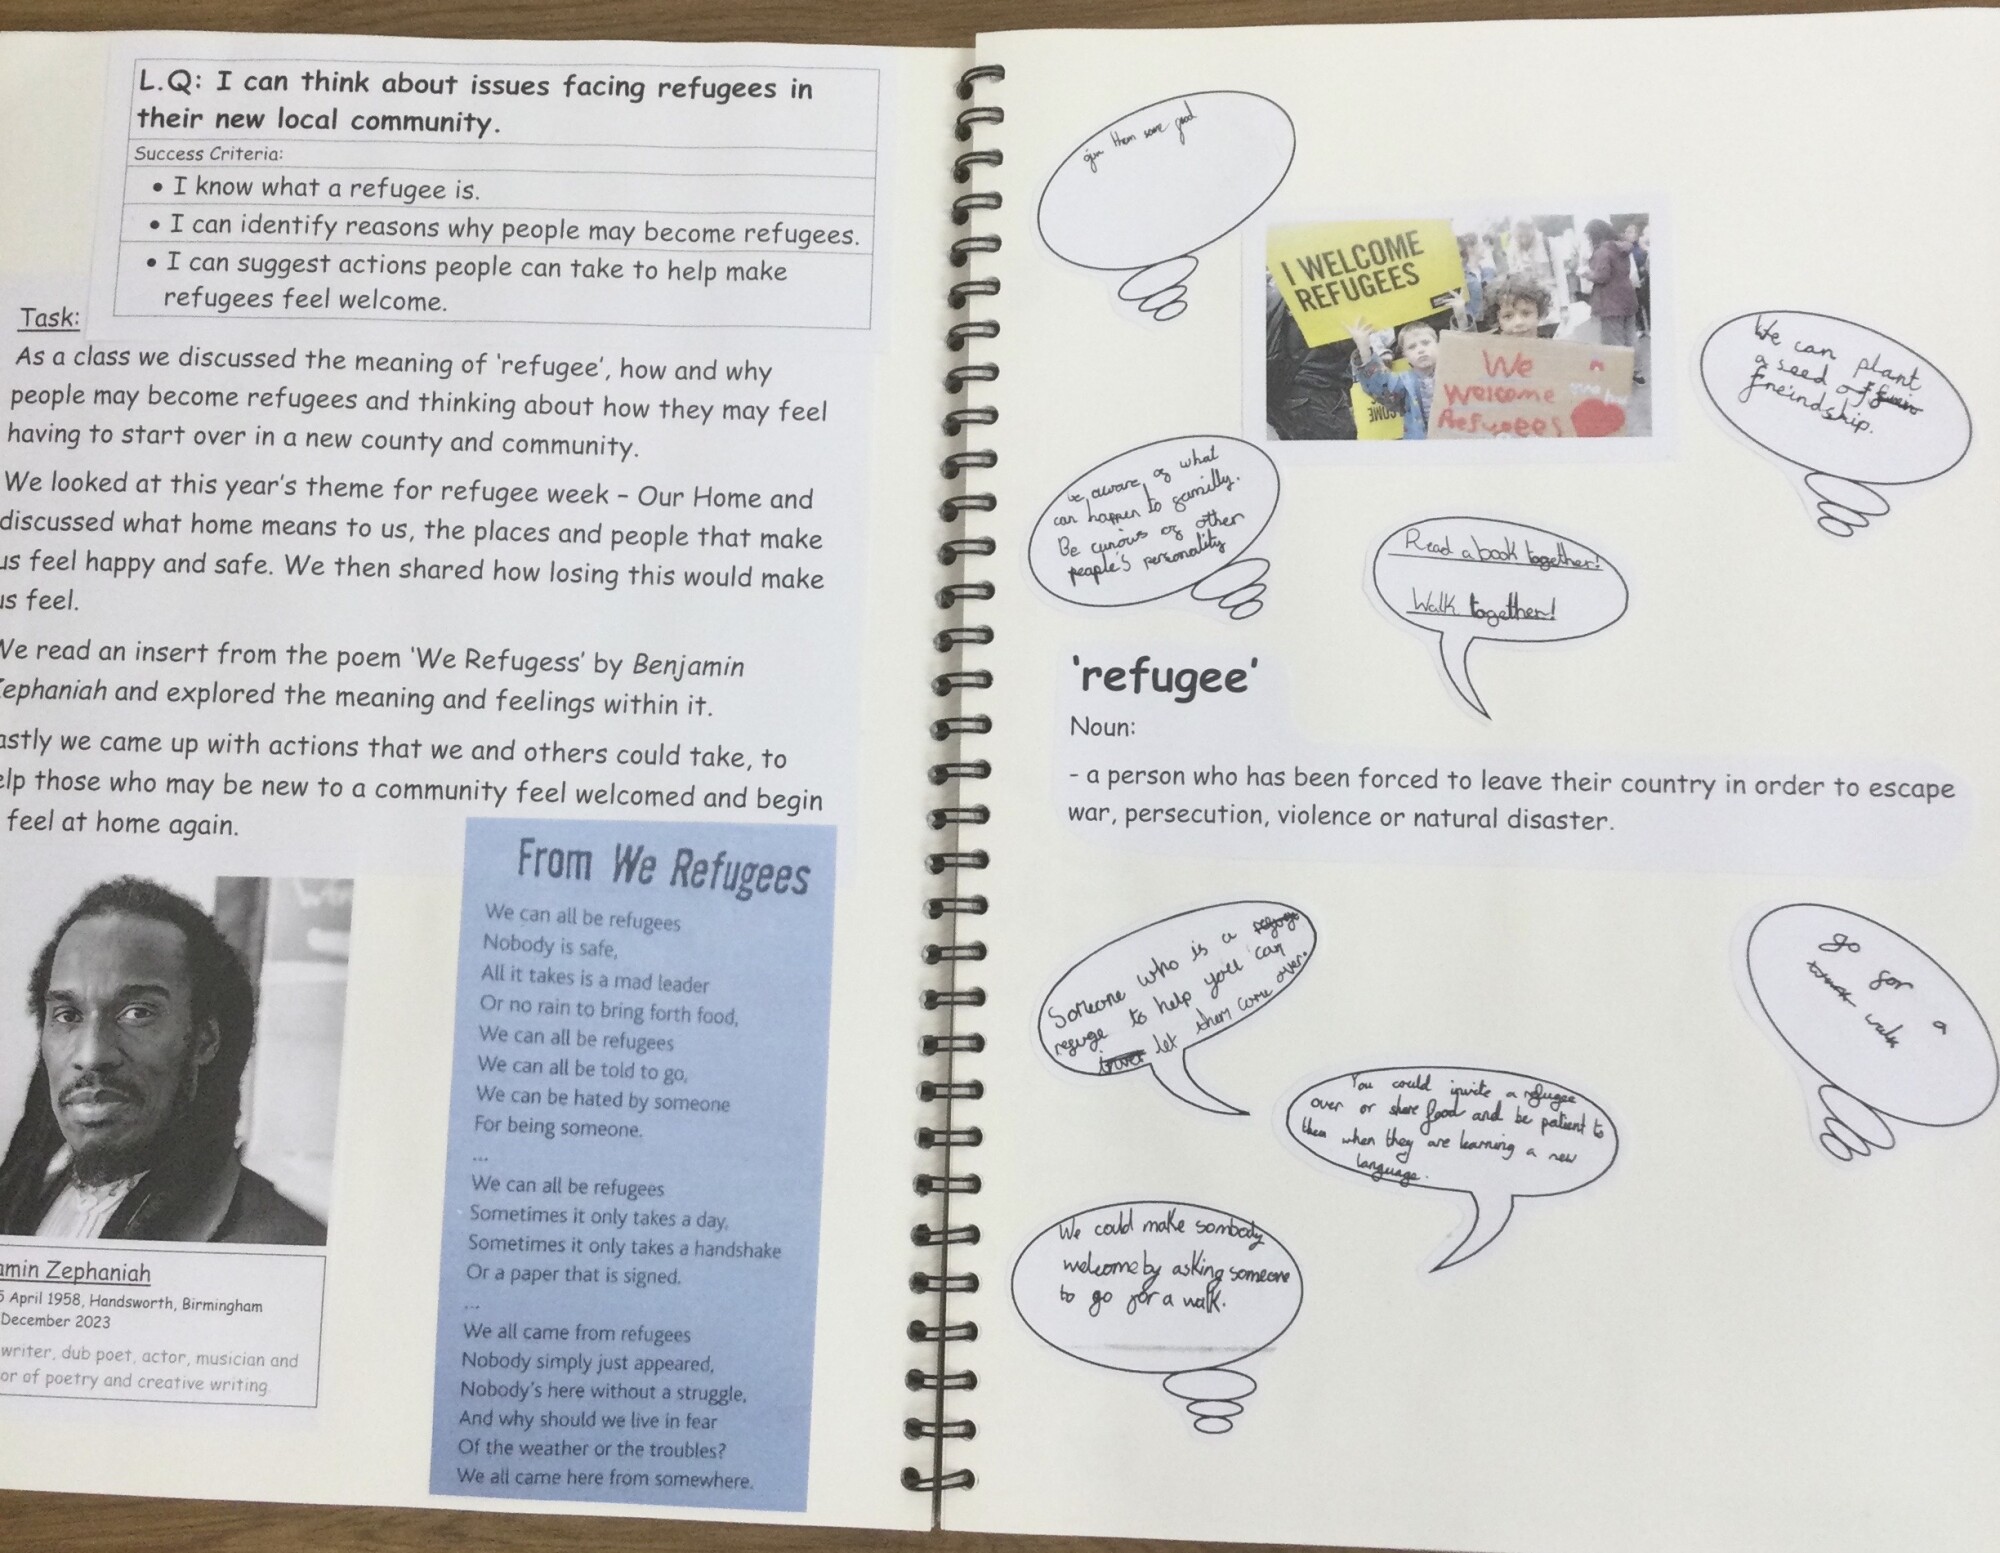 L.Q: I can think about issues facing refugees in
their new local community.
Success Criteria:
• I know what a refugee is.
• I can identify reasons why people may become refugees.
• I can suggest actions people can take to help make
refugees feel welcome.
Task:
As a class we discussed the meaning of 'refugee', how and why
people may become refugees and thinking about how they may feel
having to start over in a new county and community.
We looked at this year's theme for refugee week – Our Home and
discussed what home means to us, the places and people that make
us feel happy and safe. We then shared how losing this would make
us feel.
We read an insert from the poem 'We Refugess' by Benjamin
Zephaniah and explored the meaning and feelings within it.
astly we came up with actions that we and others could take, to
elp those who may be new to a community feel welcomed and begin
feel at home again.
amin Zephaniah
5 April 1958, Handsworth, Birmingham
December 2023
writer, dub poet, actor, musician and
or of poetry and creative writing.
From We Refugees
We can all be refugees
Nobody is safe,
All it takes is a mad leader
Or no rain to bring forth food,
We can all be refugees
We can all be told to go,
We can be hated by someone
For being someone.
...
We can all be refugees
Sometimes it only takes a day,
Sometimes it only takes a handshake
Or a paper that is signed.
...
We all came from refugees
Nobody simply just appeared,
Nobody's here without a struggle,
And why should we live in fear
Of the weather or the troubles?
We all came here from somewhere.
them some
I WELCOME
REFUGEES
We
Welcome
Refugees
We can plant
a seed of
freindship.
be aware of what
can happen to familly.
Be curious of other
people's personality
Read a book together!
Walk together!
'refugee'
Noun:
- a person who has been forced to leave their country in order to escape
war, persecution, violence or natural disaster.
Someone who is a
refuge to help you can
let them come over.
go for a
walk
You could invite a refugee
over or share food and be patient to
them when they are learning a new
language.
We could make sombody
welcome by asking someone
to go for a walk.